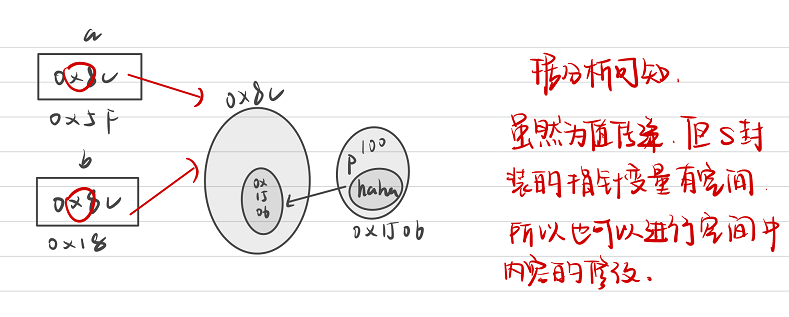 a
0x8c
0x5F
b
0x8c
0x18
0x8c
0x
15
0b
p 100
haha
0x150b
据分析可知.
虽然为值传递.但S封
装的指针变量有空间.
所以也可以进行空间中
内容的修改.